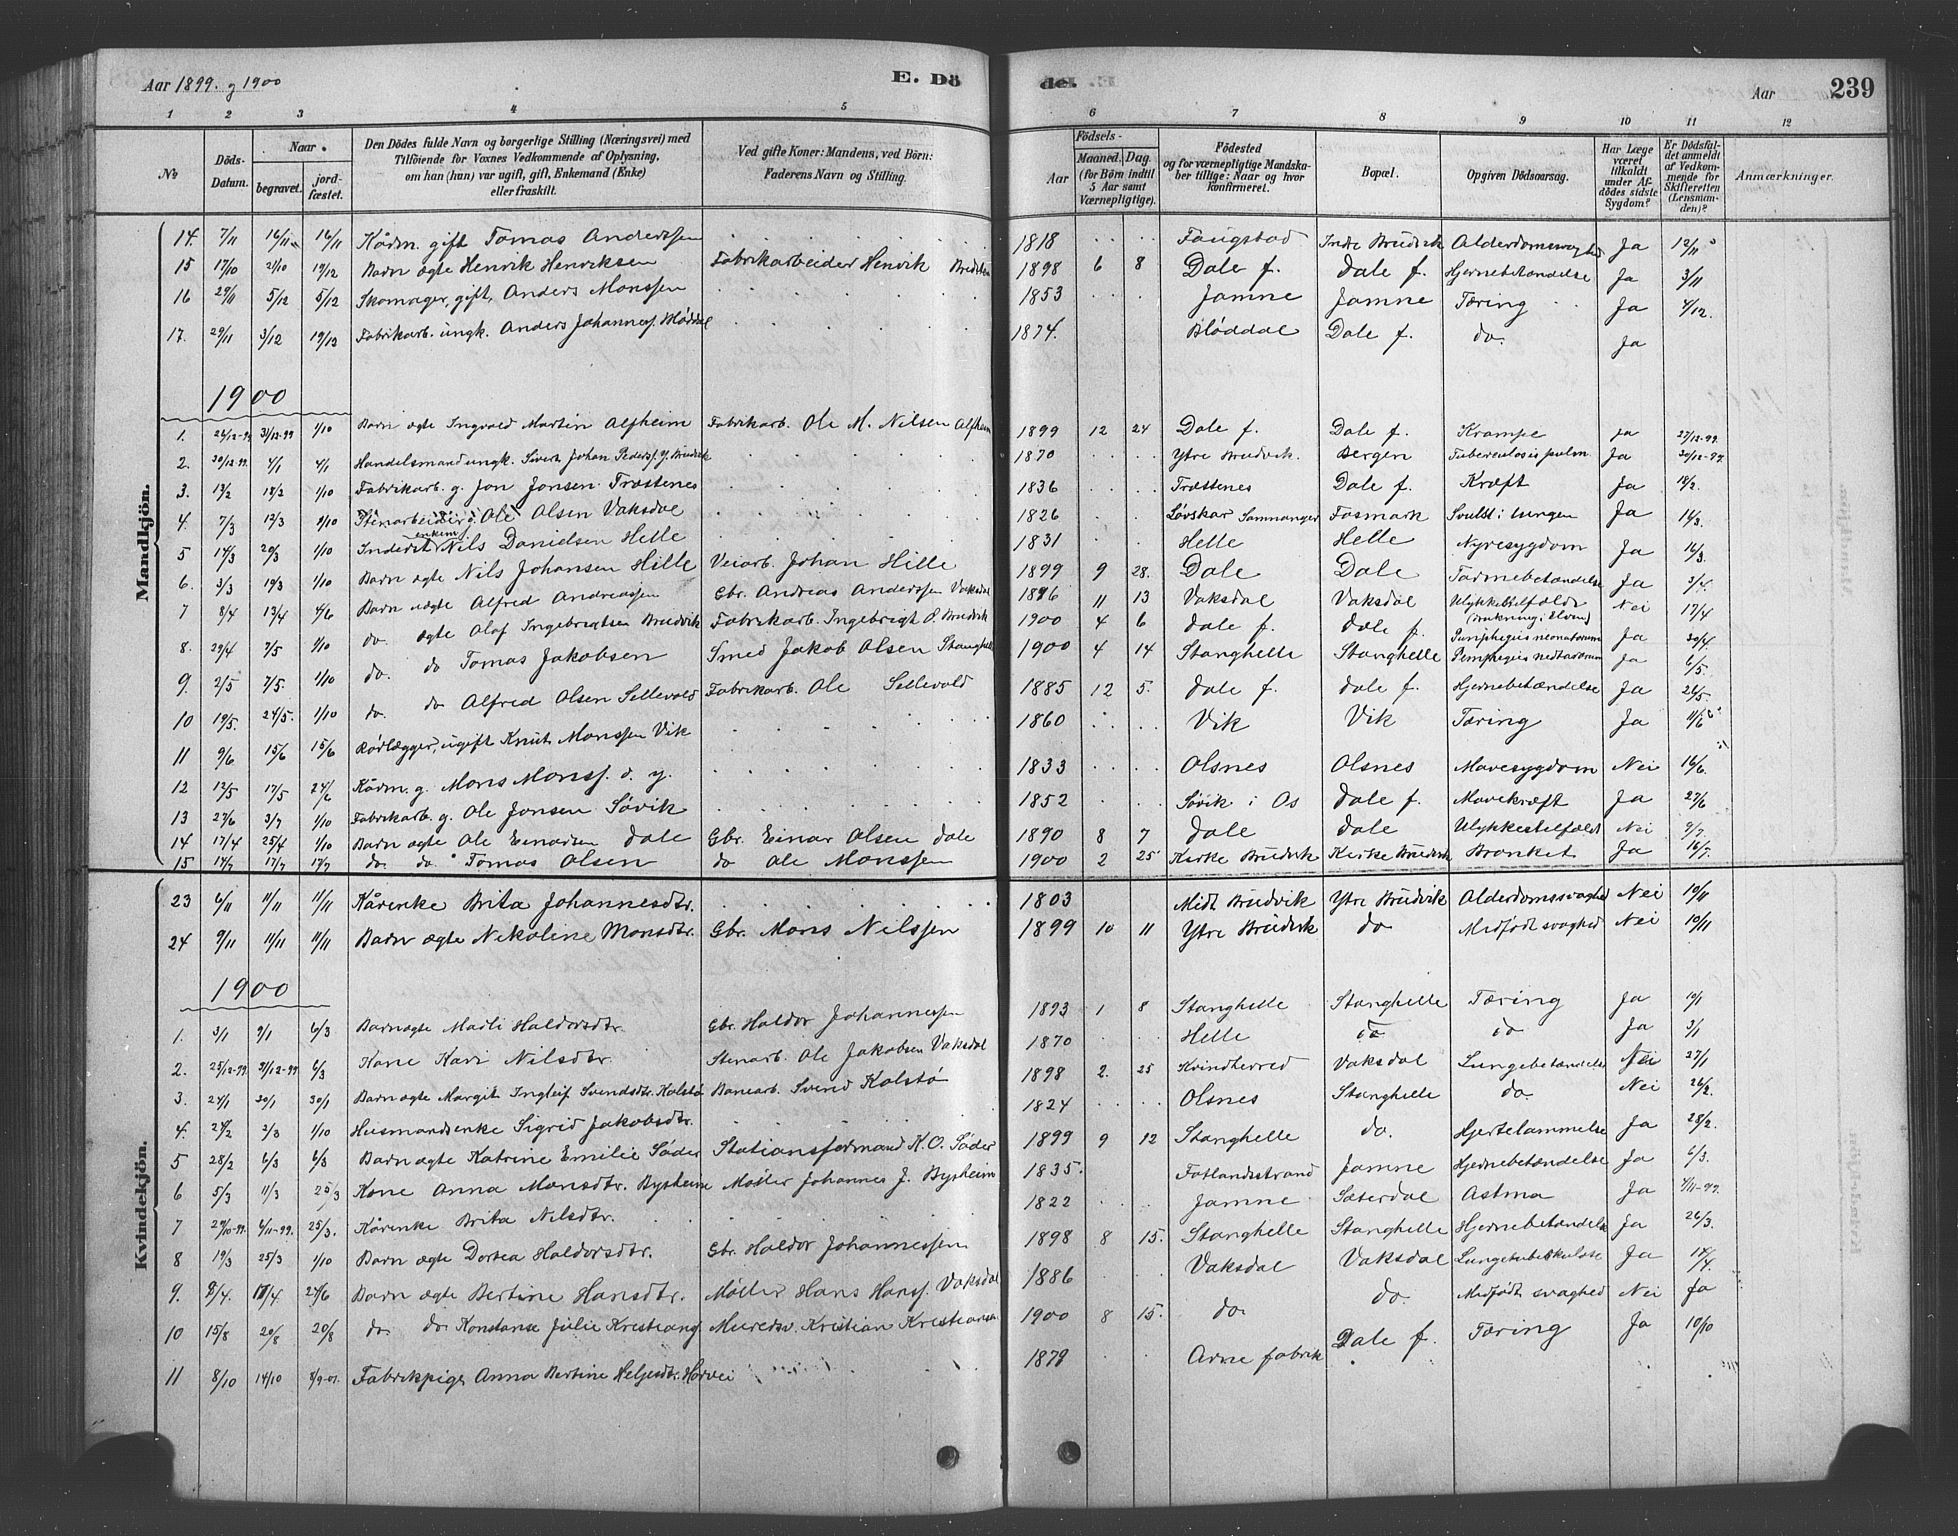 Aar 1899. og 1900
E. Dö
de.
Aar
239
1 2 3 4 5 6 7 8 9 10 11 12
No
Döds-Datum.
Naar
begravet.
jordfæstet.
Den Dödes fulde Navn og borgerlige Stilling (Næringsvei) med Tilföiende for Voxnes Vedkommende af Oplysning, om han (hun) var ugift, gift, Enkemand (Enke) eller fraskilt.
Ved gifte Koner: Mandens, ved Börn: Faderens Navn og Stilling.
Födsels-
Aar
Maaned. Dag.
(for Börn indtil 5 Aar samt Værnepligtige).
Födested og for værnepligtige Mandskaber tillige: Naar og hvor konfirmeret.
Bopæl.
Opgiven Dödsaarsag.
Har Læge været tilkaldt under Afdödes sidste Sygdom?
Er Dödsfaldet anmeldt af Vedkommende for Skifteretten (Lensmanden)?
Anmærkninger.
Mandkjön.
14. 7/11 16/11 16/11 Kårm. gift Tomas Anderssen 1818 Faugstad Indre Brudvik Alderdomssvaghed Ja 12/11
15 17/10 21/10 19/12 Barn ægte Henrik Henriksen Fabrikarbeider Henrik 1898 6 8 Dale f. Dale f. Hjernebetændelse Ja 3/11
16 29/11 5/12 5/12 Skomager, gift, Anders Monssen 1853 Jamne Jamne Tæring Ja 4/12.
17. 29/11 3/12 19/12 Fabrikarb. ungk. Anders Johanness. Bløddal 1874. Bløddal Dale f. do. Ja
1900
1. 26/12-99 31/12-99 1/10 Barn ægte Ingvald Martin Alfheim Fabrikarb. Ole M. Nilsen Alfheim 1899 12 24 Dale f. Dale f. Krampe Ja 27/12-99.
2. 20/12-99. 4/1 4/1 Handelsmand ungk. Sivert Johan Pederss. Y. Brudvik 1870 Ytre Brudvik. Bergen Tuberculosis pulm. Ja 30/12-99.
3. 13/2 18/2 1/10 Fabrikarb. g. Jon Jonsen Træstenes 1836 Træstenes Dale f. Kræft Ja 18/2.
4. 7/3 12/3 1/10 Stenarbeider g. Ole Olsen Vaksdal 1826 Løvskar Samnanger Fosmark Svulst i lungen Ja 14/3.
5 14/3 20/3 1/10 Inderst enkem. Nils Danielsen Helle 1831 Helle Helle Nyresygdom Ja 16/3.
6. 3/3 19/3 1/10 Barn ægte Nils Johansen Hille Veiarb. Johan Hille 1899 9 28. Dale Dale Tarmebetændelse Ja 3/4.
7 8/4 13/4 4/6 Barn uægte Alfred Andreassen Gbr. Andreas Anderssen Vaksdal 1896 11 13 Vaksdal Vaksdal Ulykkestilfælde (drukning i Elven) Nei 17/4
8. 29/4 7/5 1/10 do. ægte Olaf Ingebrigtsen Brudvik Fabrikarb. Ingebrigt O. Brudvik 1900 4 6 Dale f. Dale f. Pemphegus neonatorum Ja 30/4.
9. 2/5 7/5. 1/10 do. do Tomas Jakobsen Smed Jakob Olsen Stanghelle 1900 4 14 Stanghelle Stanghelle Pemphegus Ja 6/5.
10 19/5. 24/5. 1/10 do. do Alfred Olsen Sellevold Fabrikarb. Ole Sellevold 1885 12 5. Dale f. Dale f. Hjernebetændelse Ja 26/5.
11 9/6 15/6 15/6 Rørlægger, ugift Knut Monssen Vik 1860 Vik Vik Tæring Ja 11/6
12 12/5 17/5 24/6 Kårm. g. Mons Monss. d. y. 1833 Olsnes Olsnes Mavesygdom Nei 16/6.
13 27/6 3/7 1/10 Fabrikarb. g. Ole Jonsen Søvik 1852 Søvik i Os Dale f. Mavekræft Ja 27/6
14 17/4 25/4 1/10 Barn ægte Ole Einarsen Dale Gbr. Einar Olsen Dale 1890 8 7 Dale Dale Ulykkestilfæld Nei 9/7.
15 14/7 17/7 17/7 do. do. Tomas Olsen do Ole Monssen 1900 2 25 Kirke Brudvik Kirke Brudvik Bronket Ja 16/7.
Kvindekjön.
23 6/11 11/11 11/11 Kårenke Brita Johannesdtr. 1803 Midt Brudvik Ytre Brudvik Alderdomssvaghed Nei 10/11
24 9/11 11/11 11/11 Barn ægte Nikoline Monsdtr. Gbr. Mons Nilssen 1899 10 11 Ytre Brudvik do Medfødt svaghed Nei 10/11
1900
1. 3/1 9/1 6/3 Barn ægte Madli Haldorsdtr. Gbr. Haldor Johannessen 1893 1 8 Stanghelle Stanghelle Tæring Ja 10/1
2. 25/12-99. 31/12-99 6/3 Kone Kari Nilsdtr. Stenarb. Ole Jakobsen Vaksdal 1870 Helle do do Ja 3/1
3. 24/1 30/1 30/1 Barn ægte Margit Ingleif Svendsdtr. Kolstø Banearb. Svend Kolstø 1898 2. 25 Kvindherred Vaksdal Lungebetændelse Nei 27/1
4. 24/2 2/3 1/10 Husmandsenke Sigrid Jakobsdtr. 1824 Olsnes Stanghelle do. Nei 26/2.
5 28/2 6/3 6/3 Barn ægte Katrine Emilie Søder Stationsformand K. O. Søder 1899 9 12 Stanghelle do. Hjertelammelse Ja 28/2.
6 5/3 11/3 25/3 Kone Anna Monsdtr. Bysheim Møller Johannes J. Bysheim 1835. Fotlandsstrand Jamne Hjernebetændelse Ja 6/3.
7 29/10-99. 6/11-99. 25/3. Kårenke Brita Nilsdtr. 1822 Jamne Sæterdal Astma Ja 1/11-99.
8 19/3 25/3 1/10 Barn ægte Dortea Haldorsdtr. Gbr. Haldor Johannessen 1898 8 15. Stanghelle Stanghelle Hjernebetændelse Ja 26/3.
9. 8/4. 17/4. 24/6 Barn ægte Bertine Hansdtr. Møller Hans Hanss. Vaksdal 1886 Vaksdal Vaksdal Lungetuberkulose Ja 14/4.
10 15/8 20/8 20/8 do do Konstanse Julie Kristians Mureds. Kristian Kristiansen 1900 8 15. do do. Medfødt svaghed Nei Ja
11 8/10 14/10 8/9-01. Fabrikpige Anna Bertine Heljesdtr. Horvei 1879 Arne fabrik Dale f. Tæring Ja 10/10